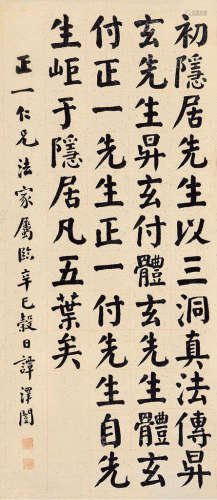 初隱居先生以三洞真法傳昇
玄先生昇玄付體玄先生體玄
付正一先生正一付先生自先
生岠于隱居凡五葉矣
正一仁兄法家屬臨辛巳穀日譚澤闓